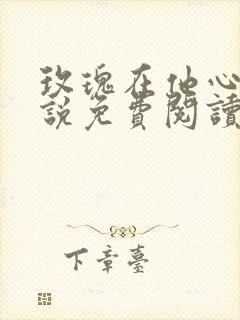 玫瑰在他心
說免費閱讀
下章臺